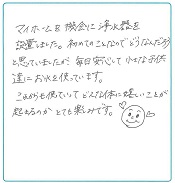 マイホームを機会に浄水器を
設置しました。初めてのことなのでどうなんだろう
と思っていましたが毎日安心して小さな子供
達にお水を使っています。
これからも使っていてどんな体に嬉しいことが
起きるのかとても楽しみです。